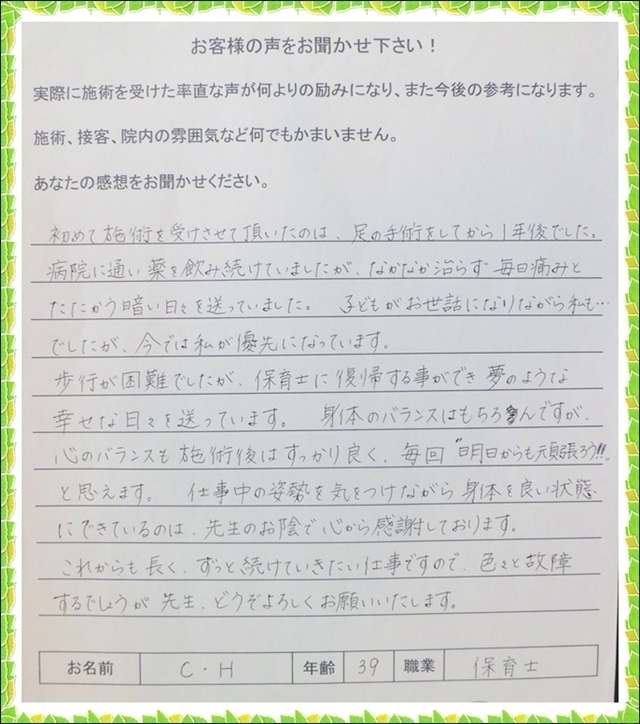 お客様の声をお聞かせ下さい！
実際に施術を受けた率直な声が何よりの励みになり、また今後の参考になります。
施術、接客、院内の雰囲気など何でもかまいません。
あなたの感想をお聞かせください。
初めて施術を受けさせて頂いたのは、足の手術をしてから1年後でした。
病院に通い薬を飲み続けていましたが、なかなか治らず毎日痛みと
たたかう暗い日々を送っていました。 子どもがお世話になりながら私も…
でしたが、今では私が優先になっています。
歩行が困難でしたが、保育士に復帰する事ができ夢のような
幸せな日々を送っています。 身体のバランスはもちろんですが、
心のバランスも施術後はすっかり良く、毎回"明日からも頑張ろう!!"
と思えます。 仕事中の姿勢を気をつけながら身体を良い状態
にできているのは、先生のお陰で心から感謝しております。
これからも長く、ずっと続けていきたい仕事ですので、色々と故障
するでしょうが先生、どうぞよろしくお願いいたします。
お名前 C・H 年齢 39 職業 保育士